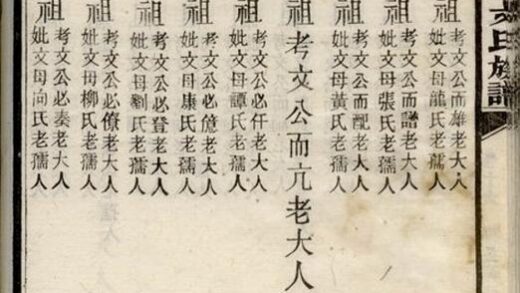 文氏族譜
祖
考文公而雄老大人
妣文母龍氏老孺人
祖
考文公而譜老大人
妣文母張氏老孺人
祖
考文公而配老大人
妣文母黃氏老孺人
祖考文公而亢老大人
祖
考文公必仟老大人
妣文母譚氏老孺人
祖
考文公必億老大人
妣文母康氏老孺人
祖
考文公必登老大人
妣文母劉氏老孺人
祖
考文公必僚老大人
妣文母柳氏老孺人
祖
考文公必泰老大人
妣文母向氏老孺人